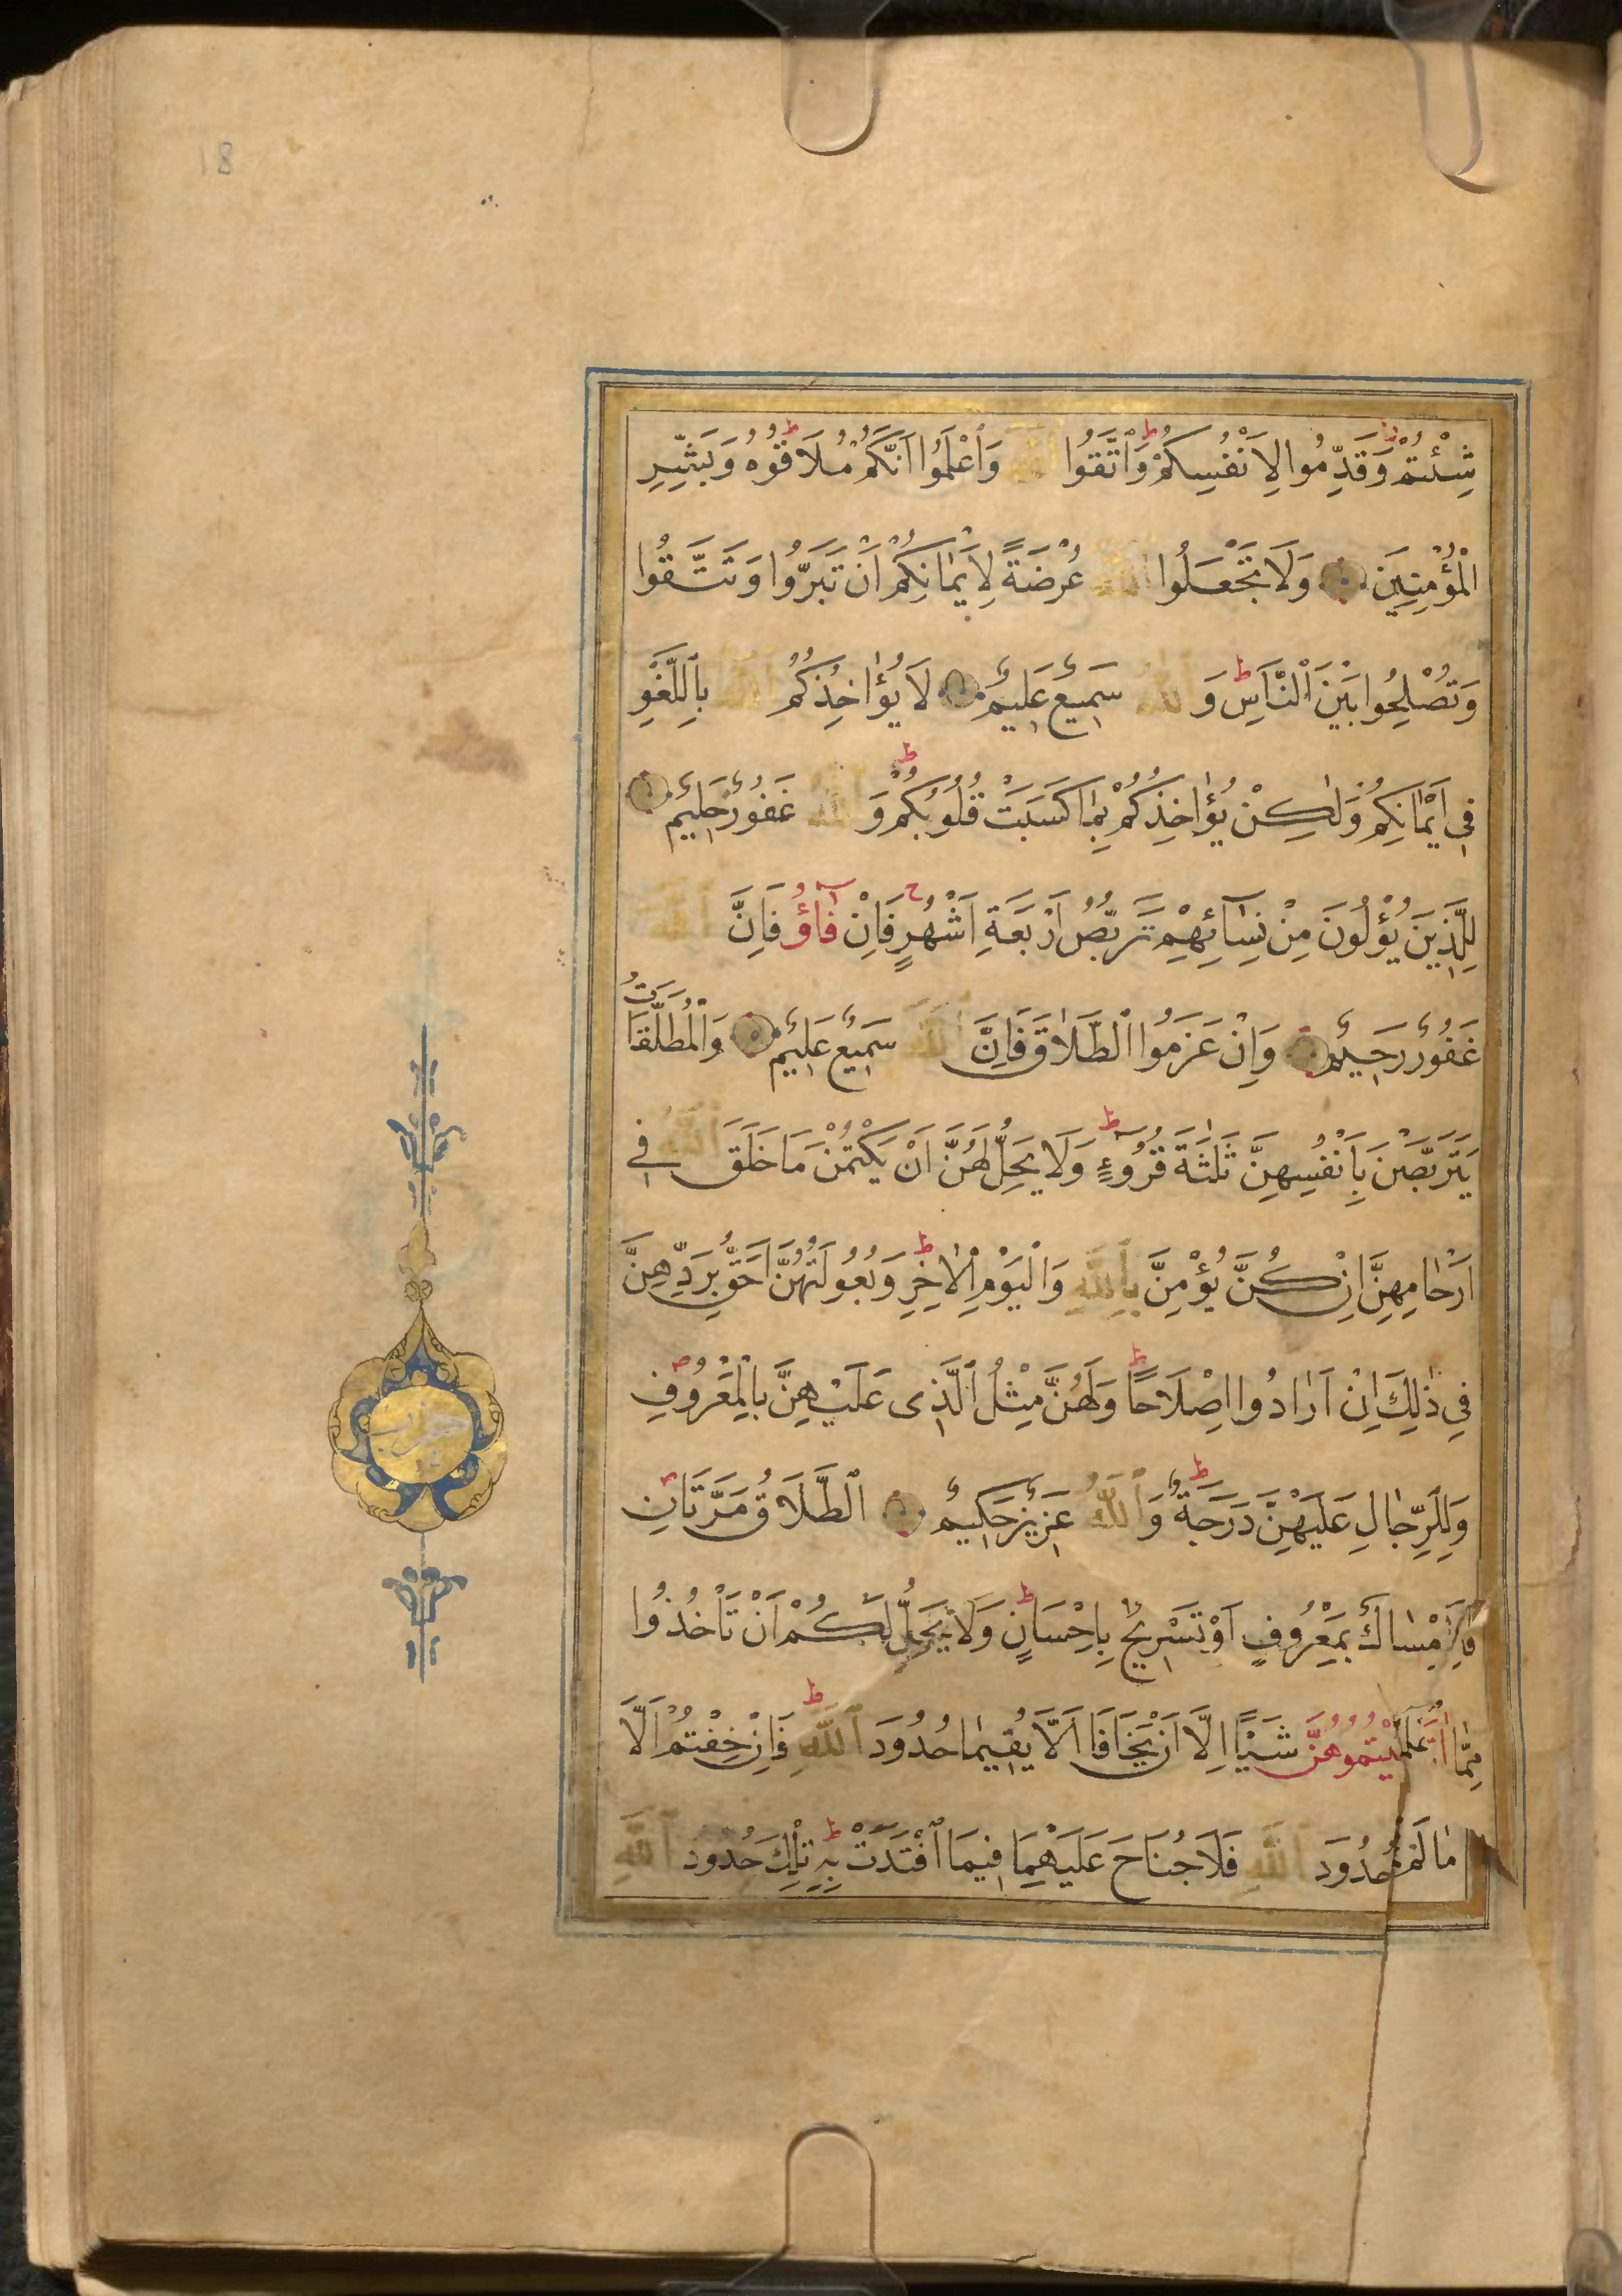 18
شِئْتُمْ وَقَدِّمُوا لِاَنْفُسِكُمْ وَاتَّقُوا اللّٰهَ وَاعْلَمُوا اَنَّكُمْ مُلَاقُوهُ وَبَشِّرِ
الْمُؤْمِنِينَ وَلَا تَجْعَلُوا اللّٰهَ عُرْضَةً لِاَيْمَانِكُمْ اَنْ تَبَرُّوا وَتَتَّقُوا
وَتُصْلِحُوا بَيْنَ النَّاسِ وَاللّٰهُ سَمِيعٌ عَلِيمٌ لَا يُؤَاخِذُكُمُ اللّٰهُ بِاللَّغْوِ
فِى اَيْمَانِكُمْ وَلٰكِنْ يُؤَاخِذُكُمْ بِمَا كَسَبَتْ قُلُوبُكُمْ وَاللّٰهُ غَفُورٌ حَلِيمٌ
لِلَّذِينَ يُؤْلُونَ مِنْ نِسَآئِهِمْ تَرَبُّصُ اَرْبَعَةِ اَشْهُرٍ فَاِنْ فَآؤُ فَاِنَّ اللّٰهَ
غَفُورٌ رَحِيمٌ وَاِنْ عَزَمُوا الطَّلَاقَ فَاِنَّ اللّٰهَ سَمِيعٌ عَلِيمٌ وَالْمُطَلَّقَاتُ
يَتَرَبَّصْنَ بِاَنْفُسِهِنَّ ثَلٰثَةَ قُرُوٓءٍ وَلَا يَحِلُّ لَهُنَّ اَنْ يَكْتُمْنَ مَا خَلَقَ اللّٰهُ فِى
اَرْحَامِهِنَّ اِنْ كُنَّ يُؤْمِنَّ بِاللّٰهِ وَالْيَوْمِ الْاٰخِرِ وَبُعُولَتُهُنَّ اَحَقُّ بِرَدِّهِنَّ
فِى ذٰلِكَ اِنْ اَرَادُوا اِصْلَاحًا وَلَهُنَّ مِثْلُ الَّذِى عَلَيْهِنَّ بِالْمَعْرُوفِ
وَلِلرِّجَالِ عَلَيْهِنَّ دَرَجَةٌ وَاللّٰهُ عَزِيزٌ حَكِيمٌ الطَّلَاقُ مَرَّتَانِ
فَاِمْسَاكٌ بِمَعْرُوفٍ اَوْ تَسْرِيحٌ بِاِحْسَانٍ وَلَا يَحِلُّ لَكُمْ اَنْ تَأْخُذُوا
مِمَّا شَيْئًا اِلَّا اَنْ يَخَافَا اَلَّا يُقِيمَا حُدُودَ اللّٰهِ فَاِنْ خِفْتُمْ اَلَّا
حُدُودَ اللّٰهِ فَلَا جُنَاحَ عَلَيْهِمَا فِيمَا افْتَدَتْ بِهِ تِلْكَ حُدُودُ اللّٰهِ